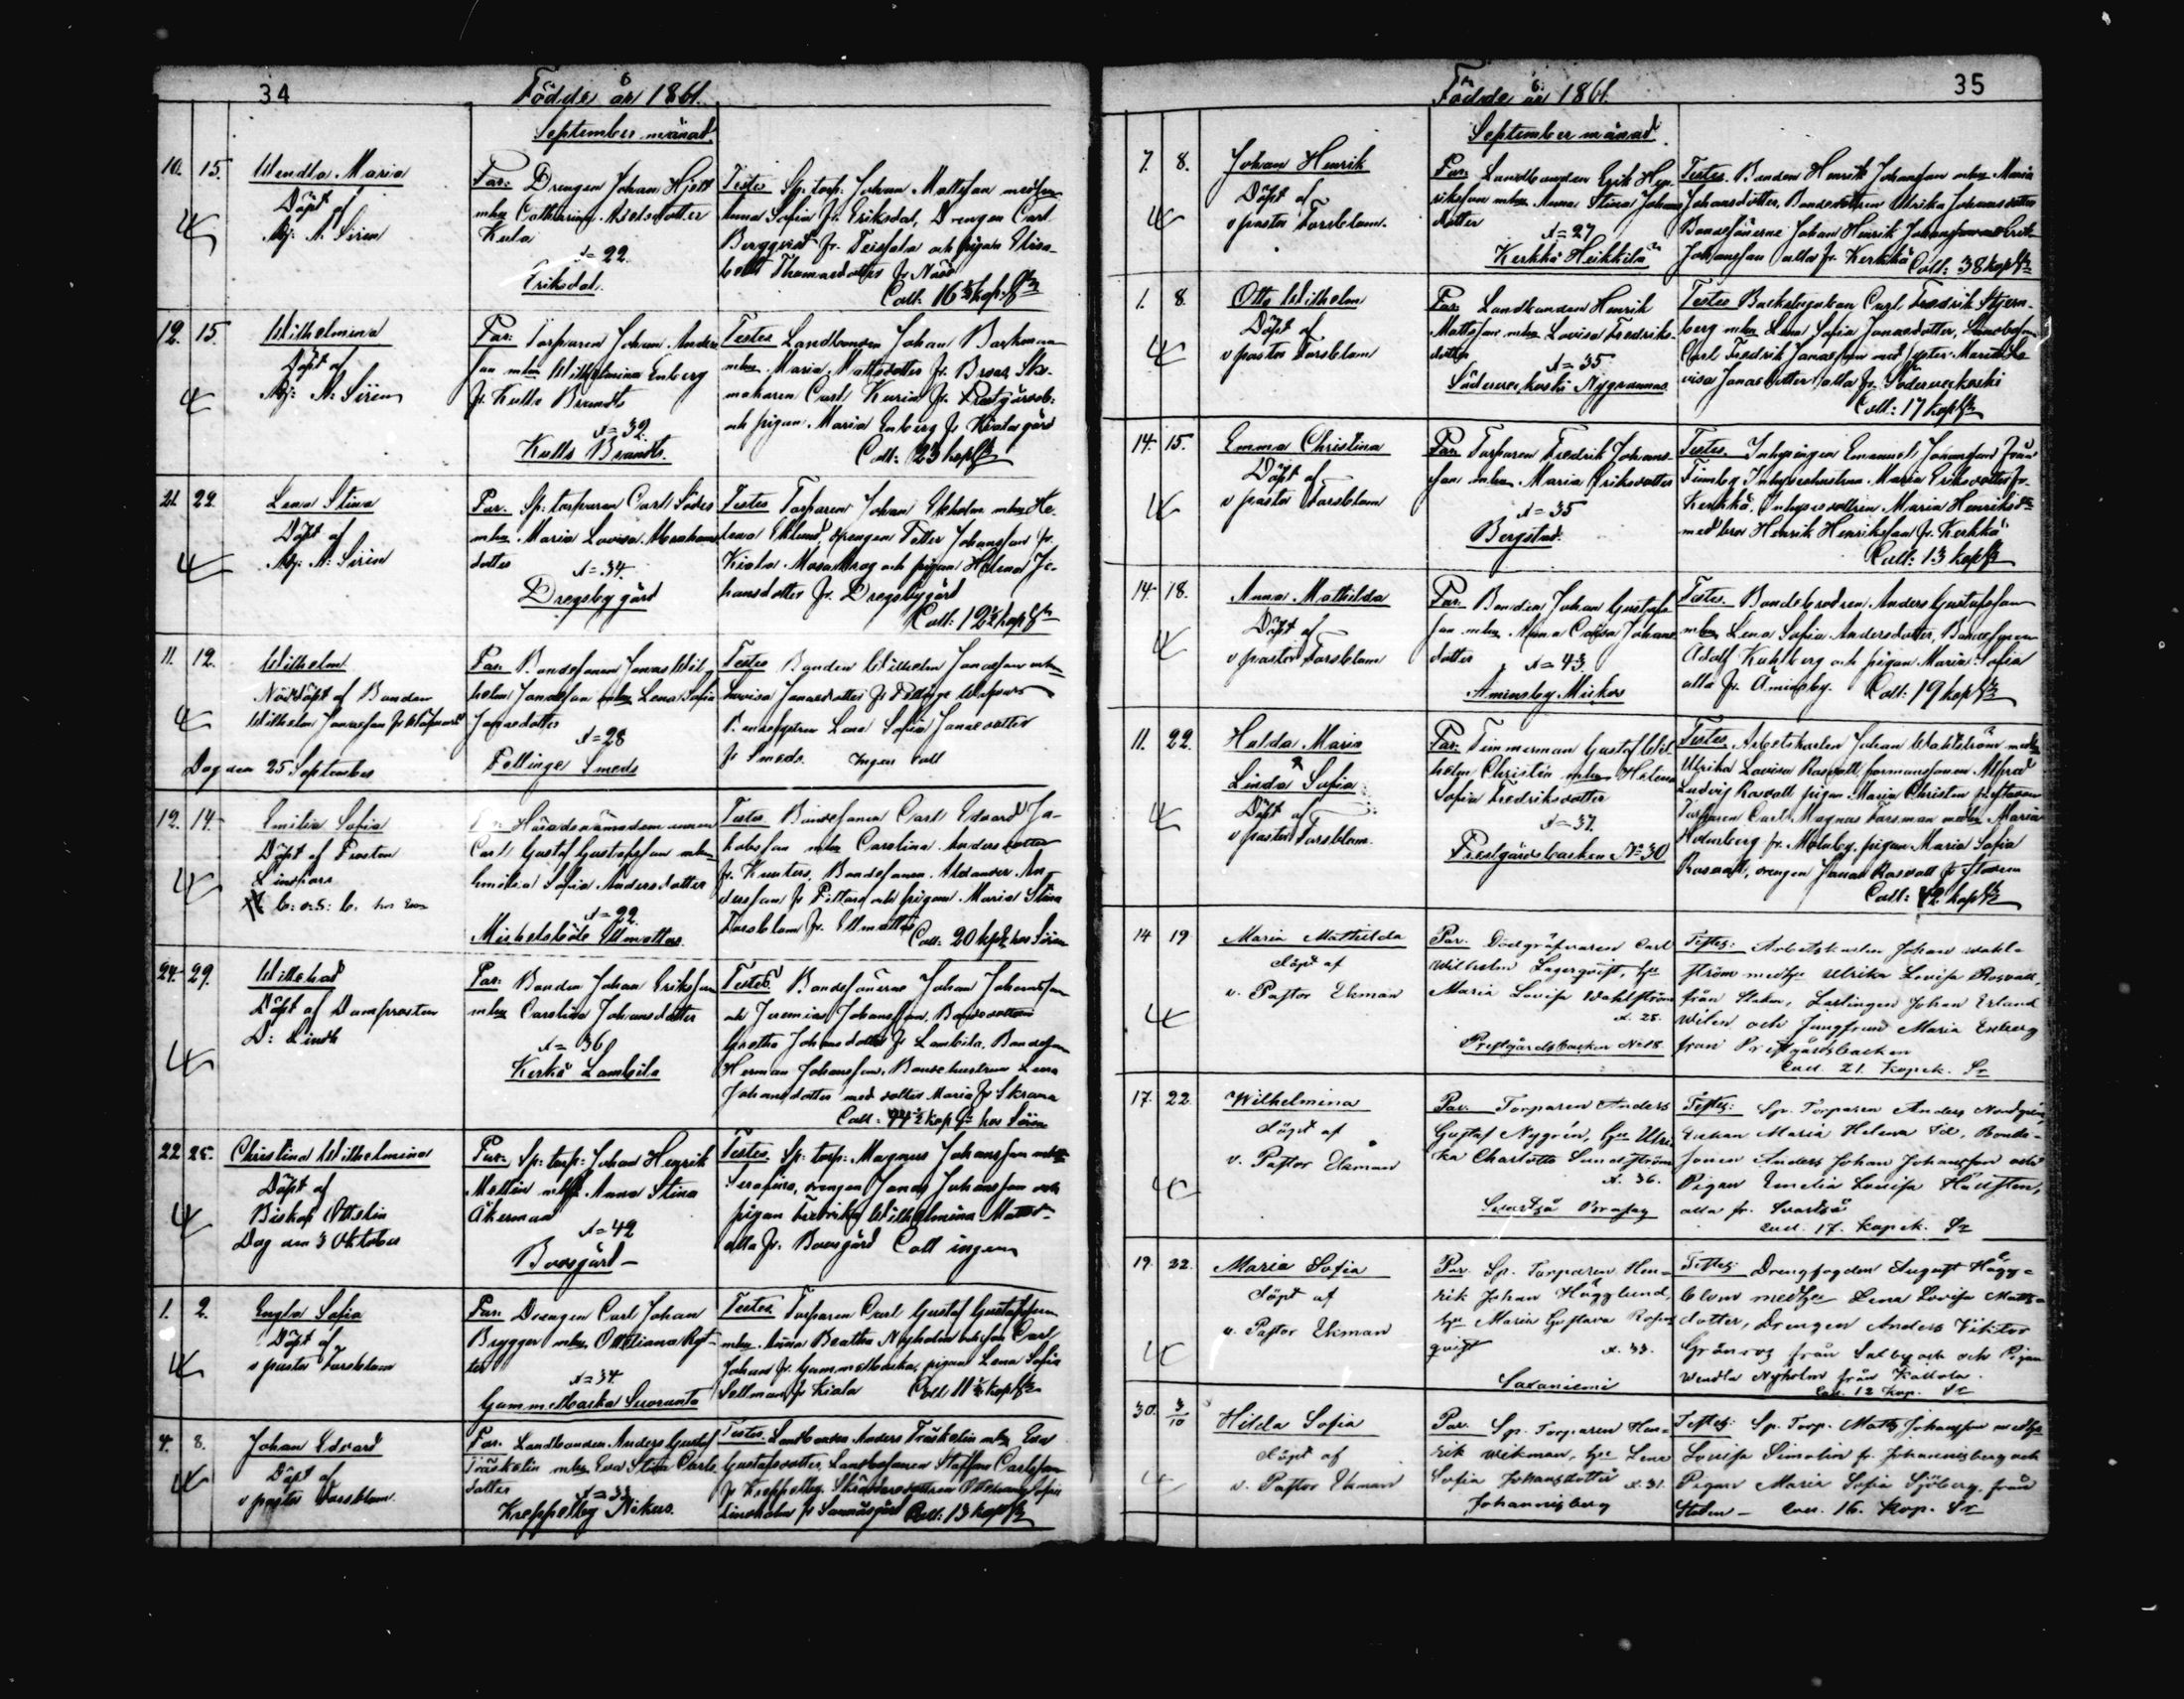 34
Födde år 1861.
September månad.
10. 15. Wendla Maria
Döpt af
Adj. A. Sirén
Par: Drengen Johan Hjelt
mhu Catharina
Kula
A=22.
Eriksdal.
Testes Sp: torp: Johan Mattsson med
Anna Sofia fr. Eriksdal, Drengen Carl
Bergqvist fr. Teissala och pigan Elisa-
beth Thomasdotter fr. Näse
Coll: 16 ½ kop. Sr
12. 15. Wilhelmina
Döpt af
Adj: A: Sirén
Par: Torparen Johan Anders
son mhu Wilhelmina Enberg
fr. Kulla Brandts
A=32.
Kulla Brandts.
Testes Landbonden Johan
mhu Maria Mattsdotter fr.
makaren Carl fr. Prestgårdsb:
och pigan Maria Enberg fr Kiala gård
Coll: 23 kop Sr
21. 22. Lena Stina
Döpt af
Adj: A: Sirén
Par. Sp: torparen Carl Söder
mhu Maria Lovisa Abrahams
dotter
A=34.
Drägsby gård
Testes Torparen Johan Ekholm mhu He-
lena Eklund, drengen Petter Johansson fr.
Kiala och pigan Helena Jo-
hansdotter fr. Drägsbygård
Coll: 12 ½ kop Sr
11. 12. Wilhelm
Nöddöpt af Bonden
Wilhelm Jonasson fr
Dog den 25 September
Par. Bondesonen Jonas Wil-
helm Jonasson mhu Lena Sofia
Jonasdotter
A=28
Pellinge Smeds
Testes Bonden Wilhelm Jonasson mhu
Lovisa Jonasdotter fr Pellinge
Lena Sofia Jonasdotter
fr Smeds. Ingen Coll
12. 14. Emilia Sofia
Döpt af Prosten
Lindfors
Häradsnämndemannen
Carl Gustaf Gustafsson mhu
Emilia Sofia Andersdotter
A=22.
Mickelsböle Ellmattas.
Testes Bondesonen Carl Edvard Ja-
kobsson mhu Carolina Andersdotter
fr. Bondesonen Alexander An-
dersson fr Pettas och pigan Maria Stina
Forsblom fr. Ellmattas
Coll: 20 kop Sr hos Sirén
24. 29. Willehad
Döpt af Domprosten
D: Lindh
Par: Bonden Johan Eriksson
mhu Carolina Johansdotter
A=36
Kerkkå Lambila
Testes Bondesönerne Johan Johansson
och Jeremias Johansson, Bondedottern
Johansdotter fr Lambila, Bondeson
Herman Johansson, Bondehustrun Lena
Johansdotter med dotter Maria fr Skrana
Coll: kop Sr hos Sirén
22 25. Christina Wilhelmina
Döpt af
Biskop Ottelin
Dog den 3 Oktober
Par. Sp: torp: Johan Henrik
Mellin mhu Anna Stina
Åkerman
A=42
Boesgård
Testes. Sp: torp: Magnus Johansson mhu
Serafina, drengen Jonas Johansson och
pigan Fredrika Wilhelmina
alla fr. Boesgård Coll ingen
1. 2. Engla Sofia
Döpt af
v pastor Forsblom
Par. Drengen Carl Johan
Brygger mhu Ottiliana
A=34.
Gammelbacka Suoranta
Testes Torparen Carl Gustaf Gustafsson
mhu Anna Beatha Nyholm Carl
Johan fr. Gammelbacka, pigan Lena Sofia
Sellman fr Kiala Coll 11 ½ kop Sr
4. 8. Johan Edvard
Döpt af
v pastor Forsblom.
Par. Landbonden Anders Gustaf
Träskelin mhu Eva Stina Carls
dotter
Kreppelby Nikus.
Testes. Landbonden Anders Träskelin mhu Eva
Gustafsdotter, Landbosonen Staffan Carlsson
fr Kreppelby, Skräddaredottren
Lindholm fr Sannäsgård Coll: 13 kop Sr
35
Födde år 1861.
September månad.
7. 8. Johan Henrik
Döpt af
v pastor Forsblom.
Par. Landbonden Erik Hen-
riksson mhu Anna Stina Johans
dotter
A=27
Kerkkå Heikkilä
Testes. Bonden Henrik Johansson mhu Maria
Johansdotter, Bondedottren Ulrika Johansdotter
Bondesönerne Johan Henrik
Johansson alla fr. Kerkkå Coll: 38 kop Sr
1. 8. Otto Wilhelm
Döpt af
v pastor Forsblom
Par. Landbonden Henrik
Mattsson mhu Lovisa Fredriks-
dotter
A=35
Söderveckoski Nygrannas
Testes Backstugukan Carl Fredrik Stjern-
berg mhu Lena Sofia Jonasdotter,
Carl Fredrik Jonasson med syster Maria Lo
visa Jonasdotter alla fr. Söderveckoski
Coll: 17 kop Sr
14. 15. Emma Christina
Döpt af
v pastor Forsblom
Par. Torparen Fredrik Johans-
son mhu Maria Eriksdotter
A=35
Bergstad.
Testes. Inhysingen Emanuel Johansson från
Finnby Inhyseshustrun Maria Eriksdotter fr.
Kerkkå, Inhysesdottren Maria Henriksdr
med bror Henrik Henriksson fr. Kerkkå
Coll: 13 kop Sr
14. 18. Anna Mathilda
Döpt af
v pastor Forsblom
Par. Bonden Johan Gustafs
son mhu Anna Cajsa Johans
dotter
A=43
Åminsby Mickos
Testes. Bondebrodren Anders Gustafsson
mhu Lena Sofia Andersdotter, Bondesonen
Adolf Kuhlberg och pigan Maria Sofia
alla fr. Åminsby. Coll: 19 kop Sr
11. 22. Hulda Maria
Linda Sofia
Döpt af
v pastor Forsblom.
Par: Timmerman Gustaf Wil-
helm Christin mhu Helena
Sofia Fredriksdotter
A=37.
Prestgårdsbacken No 30
Testes Arbetskarlen Johan Wahlström medhu
Ulrika Lovisa Rosvall, formanssonen Alfred
Ludvig Rosvall pigan Maria Christin
Torparen Carl Magnus Forsman mhu Maria
Holmberg fr. Molnby, pigan Maria Sofia
Rosvall, drengen Jonas Rosvall fr Staden
Coll: 12 kop Sr
14 19 Maria Mathilda
döpt af
v. Pastor Ekman
Par. Dödgräfvaren Carl
Wilhelm Lagerqvist, hu
Maria Lovisa Wahlström
A. 28.
Prestgårdsbacken No 18.
Testes: Arbetskarlen Johan Wahl-
ström medhu Ulrika Lovisa Rosvall,
från Staden, Lärlingen Johan Erland
Wilen och Jungfrun Maria Enberg
från Prestgårdsbacken
Coll. 21. Kopek. Sr
17. 22 Wilhelmina
döpt af
v. Pastor Ekman
Par. Torparen Anders
Gustaf Nygrén, hu Ulri
ka Charlotta Sundström
A. 36.
Svartså
Testes: Sp. Torparen Anders
Enkan Maria Helena Id, Bonde-
sonen Anders Johan Johansson och
Pigan Emelia Lovisa Hallsten,
alla fr. Svartså
Coll. 17. Kopek. Sr
19. 22. Maria Sofia
döpt af
v. Pastor Ekman
Par. Sp. Torparen Hen-
rik Johan Hägglund,
hu Maria Gustava Rosen
qvist A. 33.
Saxaniemi
Testes: Drengfogden August Hägg-
blom medhu Lena Lovisa Matts-
dotter, Drengen Anders Viktor
Grönroos från och Pigan
Wendla Nyholm från
Coll. 12 kop. Sr
30. 3/10 Hilda Sofia
döpt af
v. Pastor Ekman
Par. Sp. Torparen Hen-
rik Wikman, hu Lena
Sofia Johansdotter A. 31.
Johannisberg
Testes: Sp. Torp. Matts Johansson medhu
Lovisa Simolin fr. Johannisberg och
Pigan Maria Sofia Sjöberg, från
Staden – Coll. 16. Kop. Sr